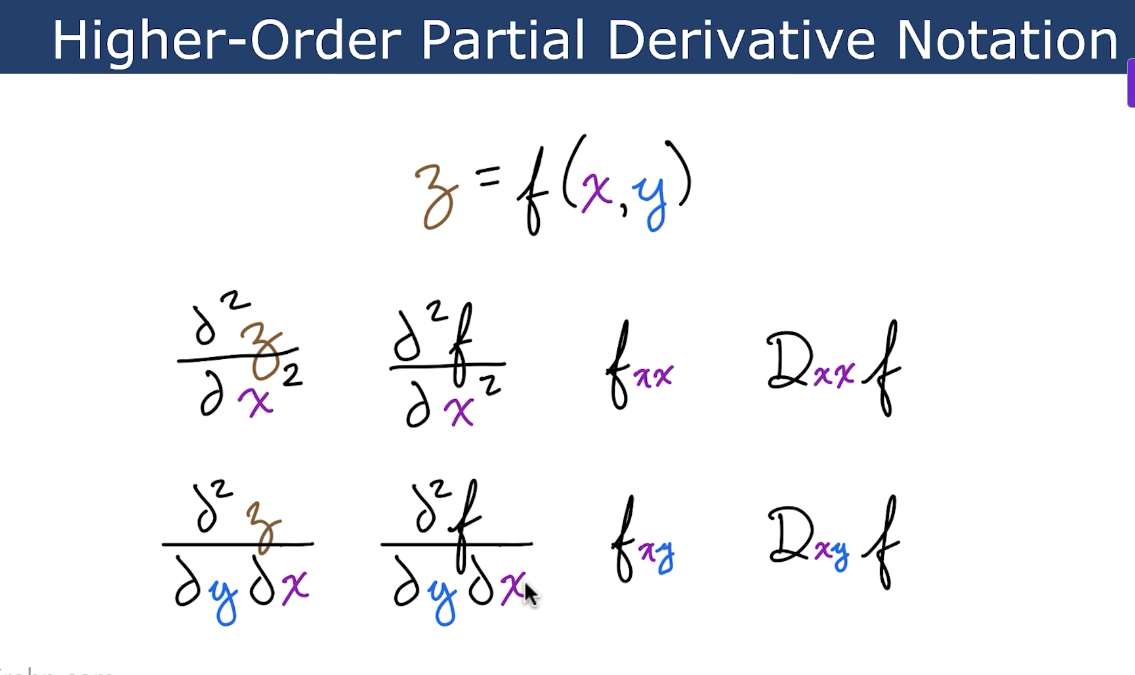 Higher-Order Partial Derivative Notation
z = f(x,y)
∂²z/∂x² ∂²f/∂x² fₓₓ Dₓₓf
∂²z/∂y∂x ∂²f/∂y∂x f_xy D_xy f